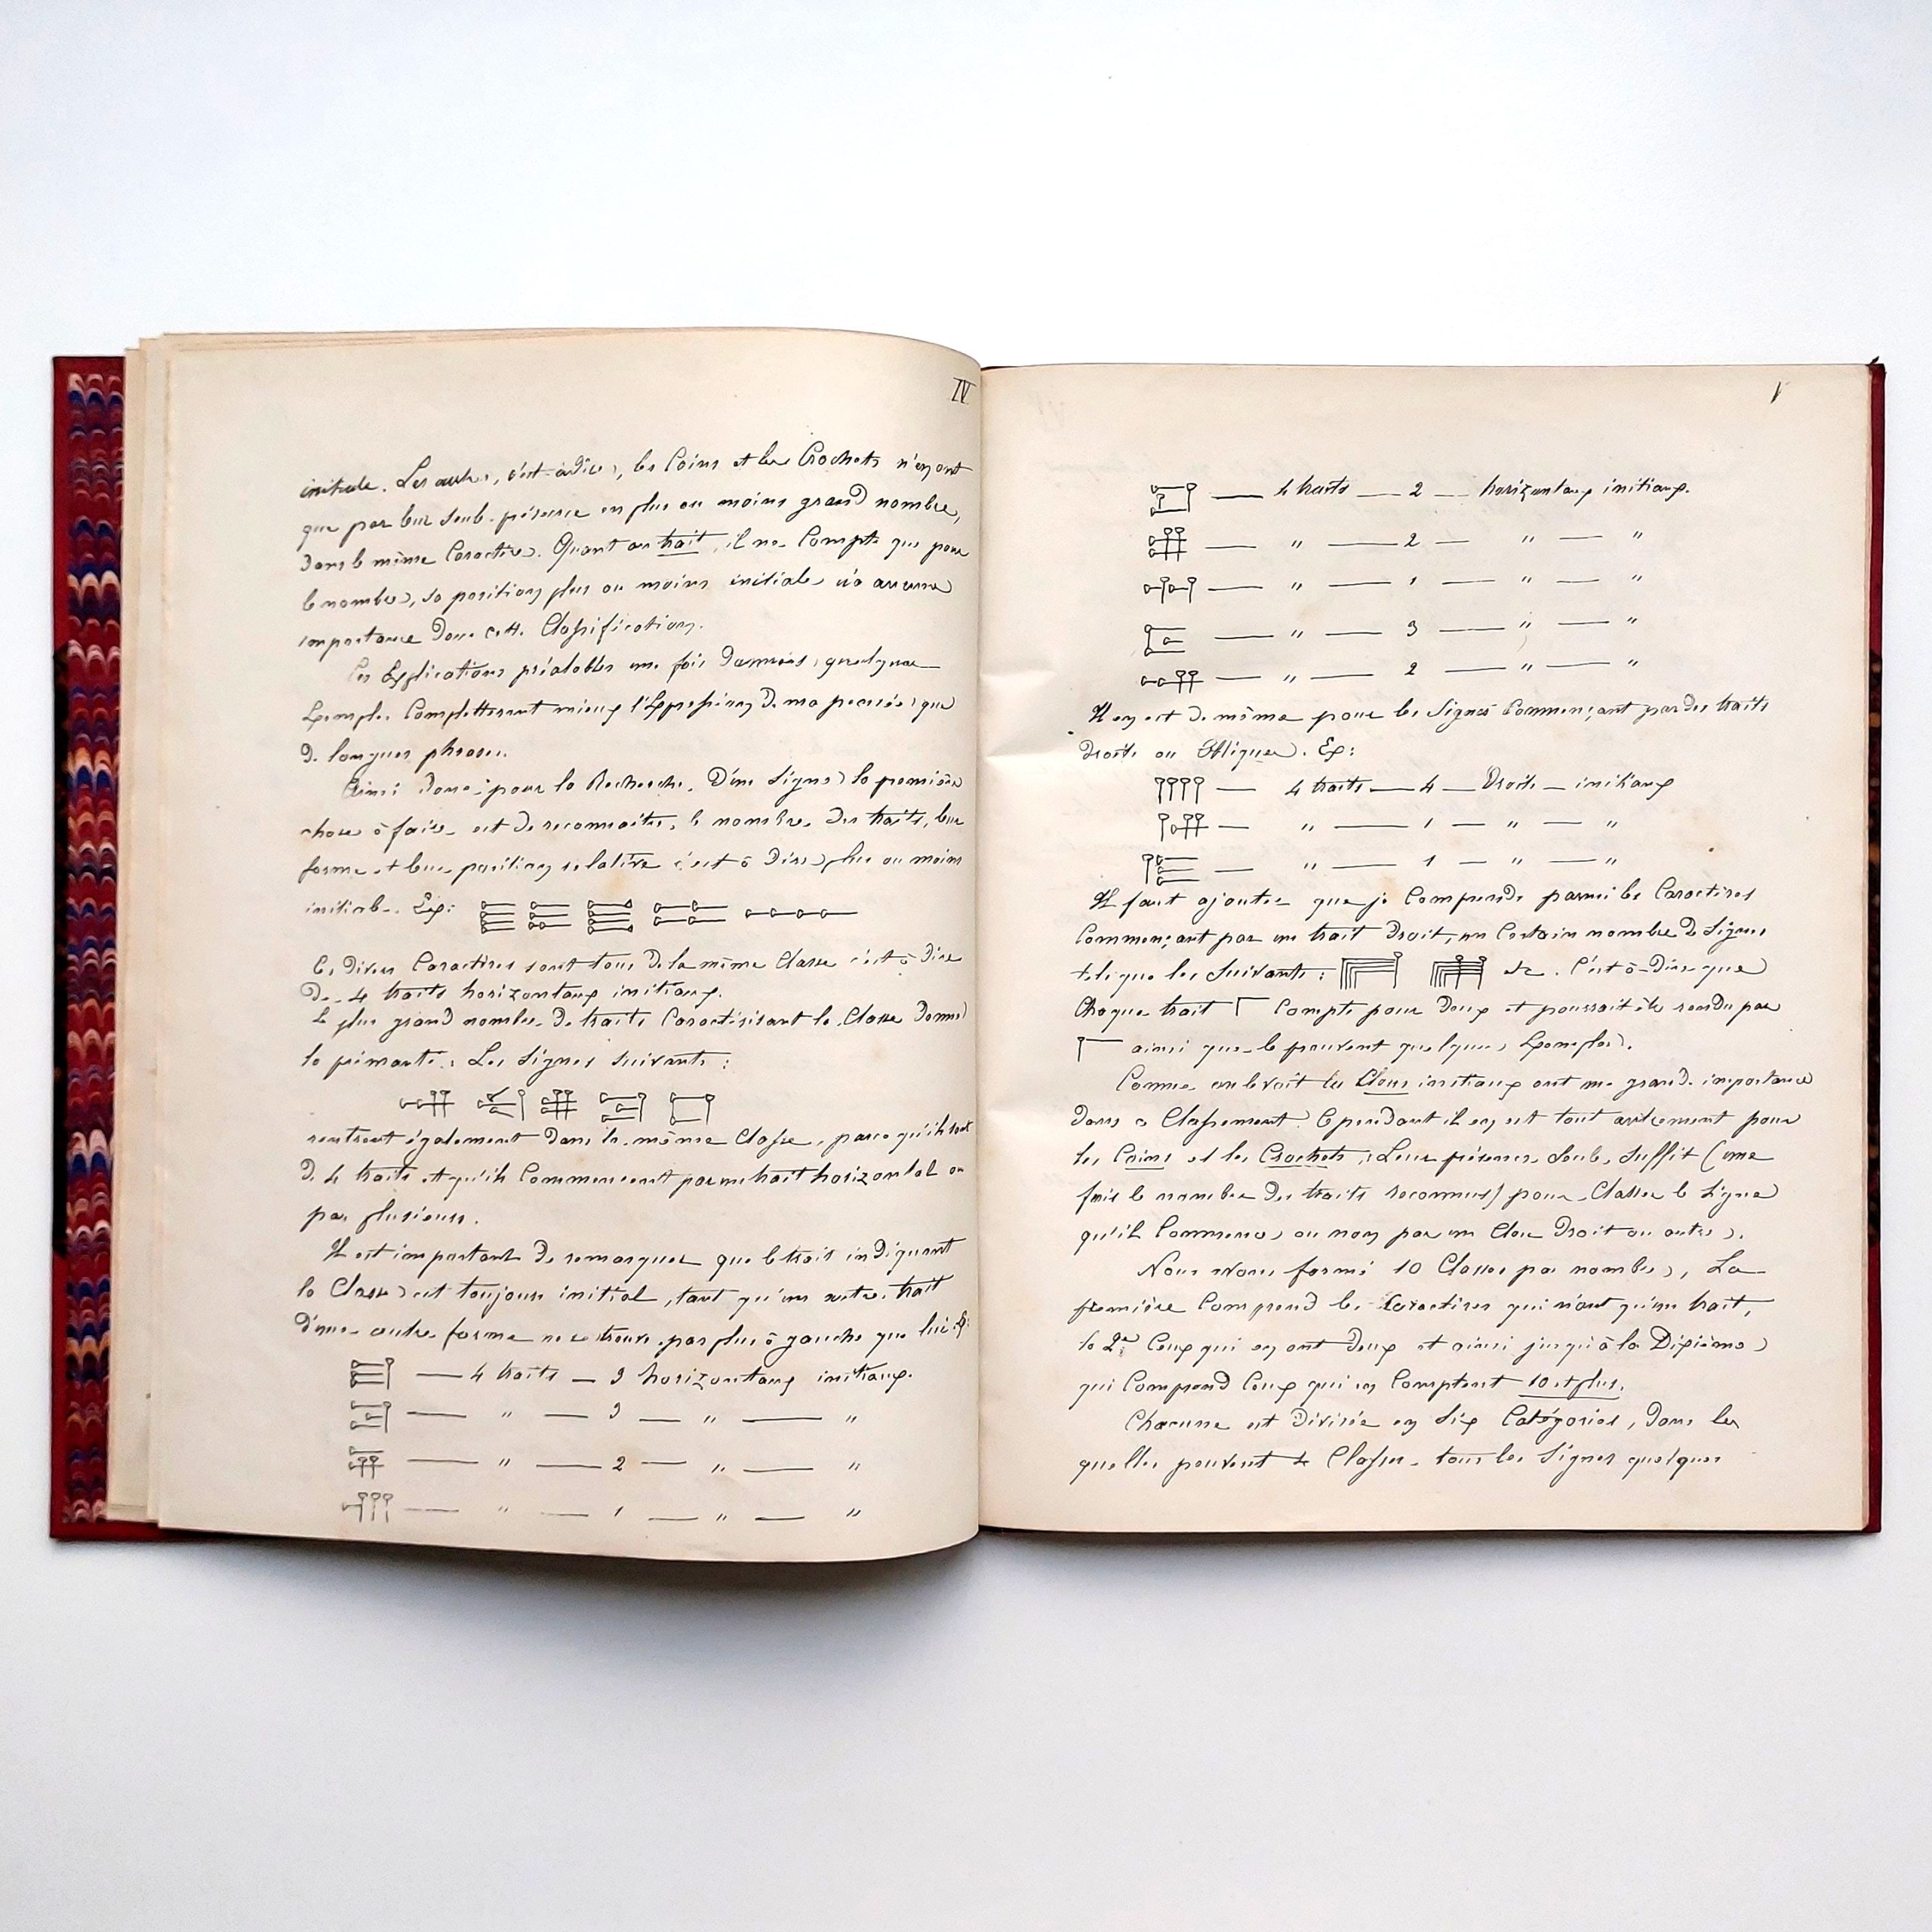 IV
initiale. Les autres, c'est-à-dire, les Coins et les Crochets n'en ont
que par leur seule présence en plus ou moins grand nombre,
dans le même Caractère. Quant au trait, il ne Compte que pour
le nombre, sa position plus ou moins initiale n'a aucune
importance dans cette Classification.
Ces Explications préalables une fois données, quelques
Exemples Complètteront mieux l'Expression de ma pensée, que
de longues phrases.
Ainsi donc, pour la Recherche d'un Signe, la première
chose à faire est de reconnaitre, le nombre des traits, leur
forme et leur position relative c'est à dire, plus ou moins
initiale. Ex:
Ces divers Caractères sont tous de la même Classe c'est à dire
De 4 traits horizontaux initiaux.
le plus grand nombre de traits Caractérisant la Classe donne
la primauté. Les Signes Suivants :
rentrent également dans la même Classe, parce qu'ils sont
De 4 traits et qu'ils Commencent par un trait horizontal ou
par plusieurs.
Il est important de remarquer que le trait indiquant
la Classe est toujours initial, tant qu'un autre trait
d'une autre forme ne se trouve pas plus à gauche que lui. Ex:
— 4 traits — 3 horizontaux initiaux.
— " — 3 — " — "
— " — 2 — " — "
— " — 1 — " — "
V
— 4 traits — 2 — horizontaux initiaux.
— " — 2 — " — "
— " — 1 — " — "
— " — 3 — " — "
— " — 2 — " — "
Il en est de même pour les Signes Commençant par des traits
droits ou Obliques. Ex:
— 4 traits — 4 — Droits — initiaux
— " — 1 — " — "
— " — 1 — " — "
Il faut ajouter que je Comprends parmi les Caractères
Commençant par un trait Droit, un Certain nombre de Signes
tels que les Suivants : etc. C'est-à-Dire que
Chaque trait Compte pour Deux et pourrait être rendu par
ainsi que le prouvent quelques Exemples.
Comme on le voit les Clous initiaux ont une grande importance
dans ce Classement. Cependant il en est tout autrement pour
les Coins et les Crochets, Leur présence Seule, Suffit (une
fois le nombre des traits reconnus) pour Classer le Signe
qu'il Commence ou non par un Clou Droit ou autre.
Nous avons formé 10 Classes par nombre, La
première Comprend les Caractères qui n'ont qu'un trait,
la 2e Ceux qui en ont deux et ainsi jusqu'à la Dixième
qui Comprend Ceux qui en Comptent 10 et plus.
Chacune est Divisée en Six Catégories, Dans les
quelles peuvent se Classer tous les Signes quelques